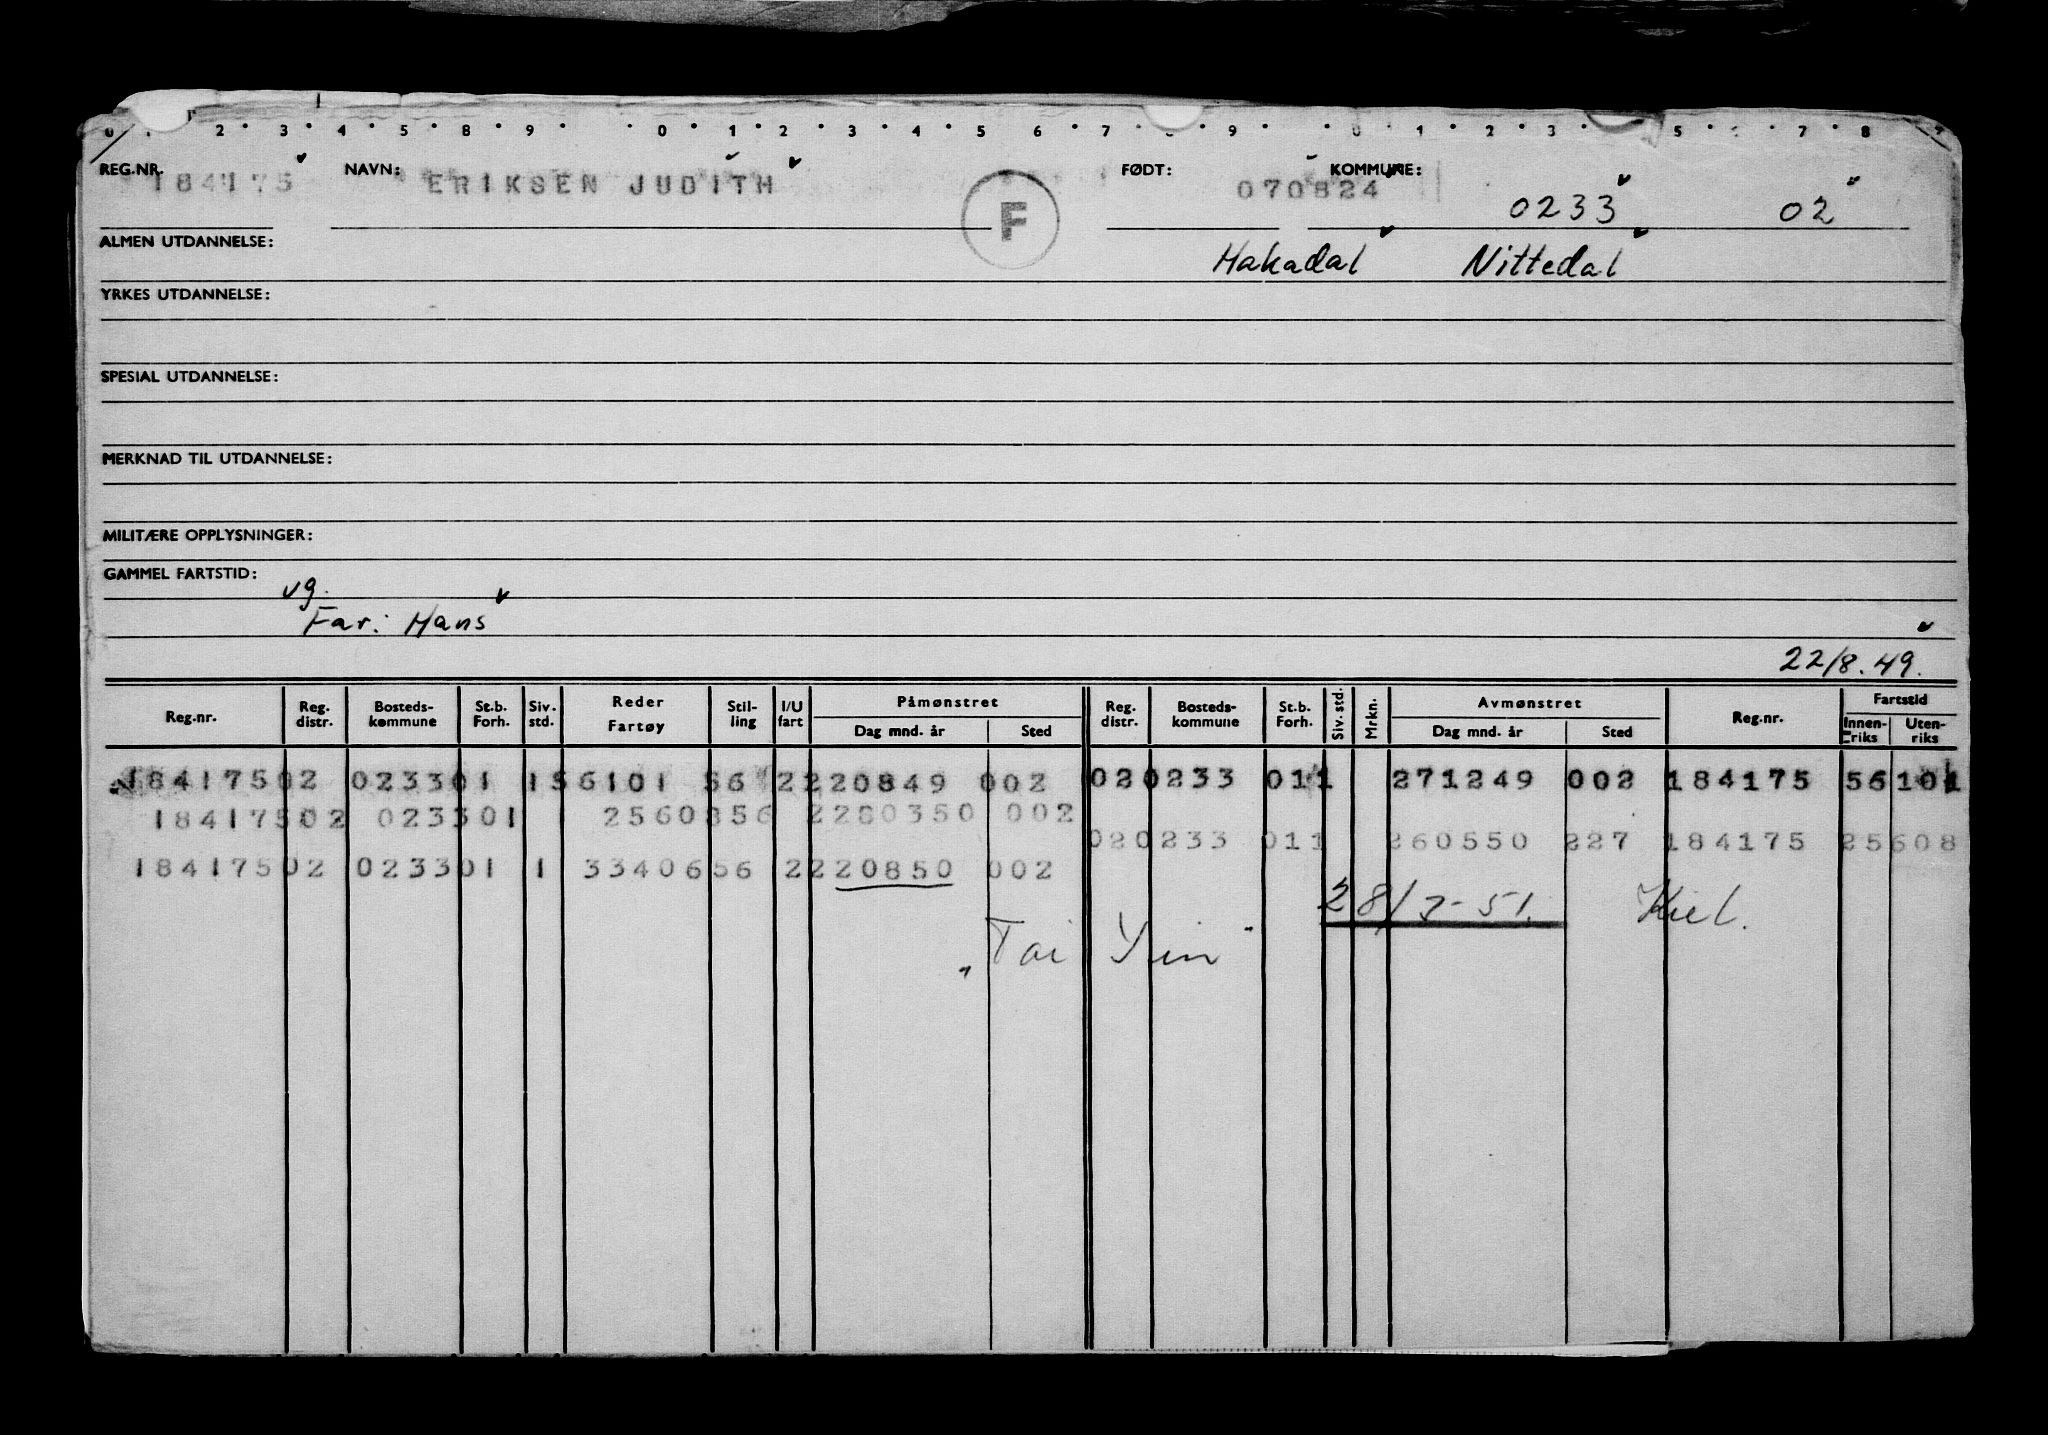 0 1 2 3 4 5 8 9 0 1 2 3 4 5 6 7 8 9 0 1 2 3 5 7 8
REG.NR. 184175 NAVN: ERIKSEN JUDITH FØDT: 070824 KOMMUNE: 0233 02
F
ALMEN UTDANNELSE: Hakadal Nittedal
YRKES UTDANNELSE:
SPESIAL UTDANNELSE:
MERKNAD TIL UTDANNELSE:
MILITÆRE OPPLYSNINGER:
GAMMEL FARTSTID:
vg.
Far: Hans
22/8.49.
Reg.nr. Reg. distr. Bosteds-kommune St.b. Forh. Siv. std. Reder Fartøy Stil-ling I/U fart Påmønstret Dag mnd. år Sted Reg. distr. Bosteds-kommune St.b. Forh. Siv. std. Mrkn. Avmønstret Dag mnd. år Sted Reg.nr. Fartstid Innen-riks Uten-riks
18417502 023301 156101 56 2220849 002 020233 011 271249 002 184175 56101
18417502 023301 2560856 2280350 002
020233 011 260550 227 184175 25608
18417502 023301 1 3340656 2220850 002
28/3-51. Kiel.
"Tai Yin"